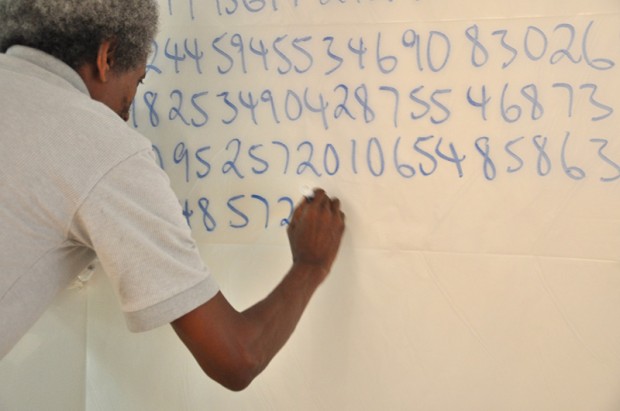 44594553469083026
825349042875546873
95257201065485863
8572